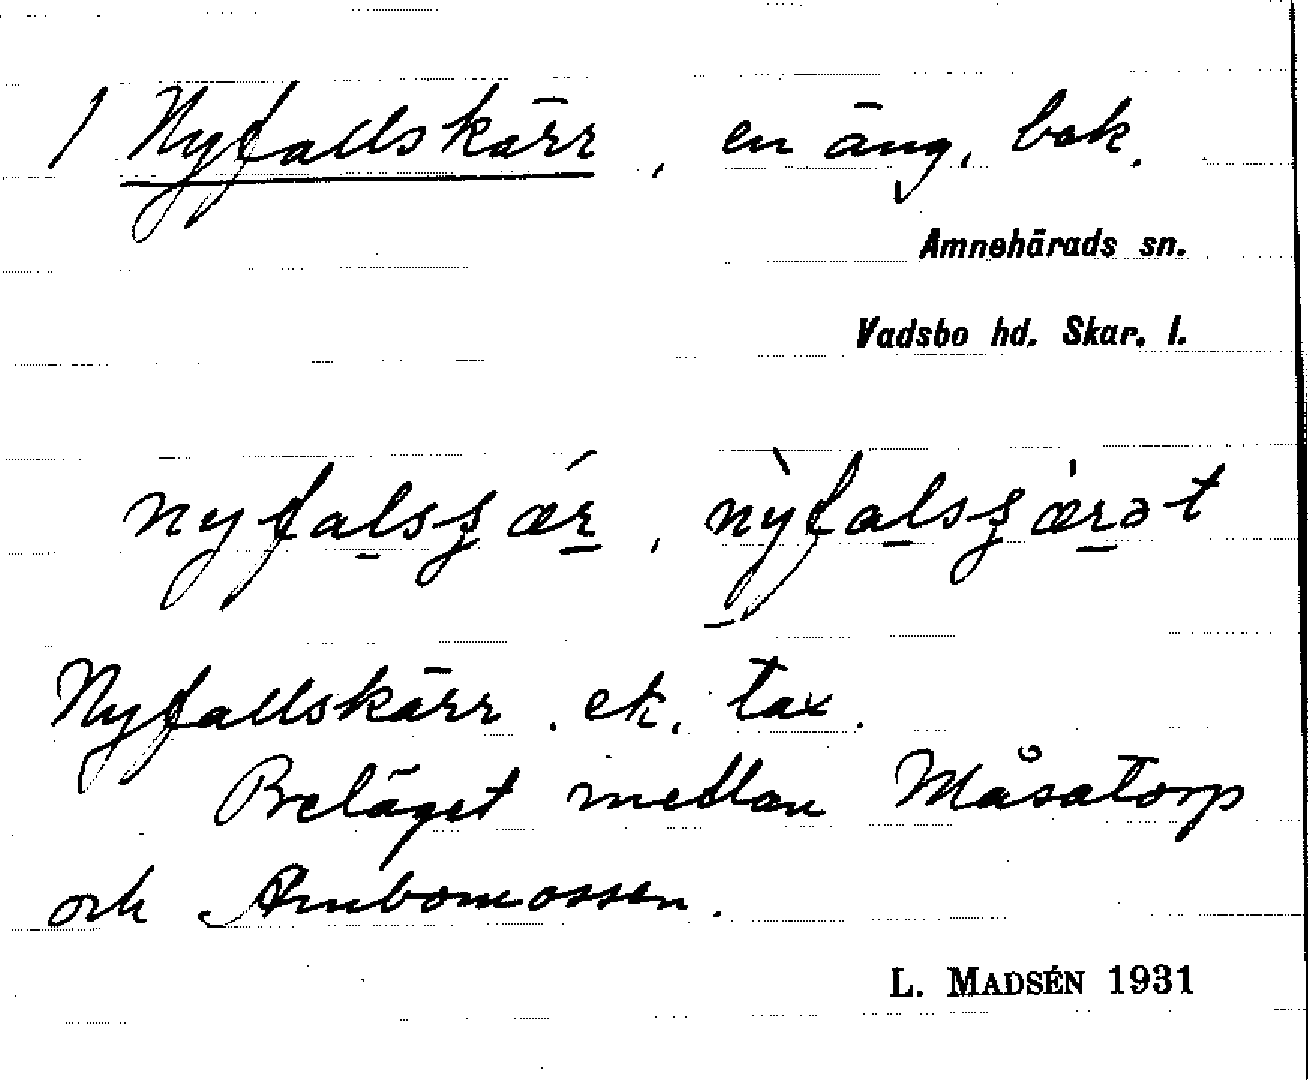 1 Nyfallskärr, en äng, bek.
Amnehärads sn.
Vadsbo hd. Skar. l.
nyfalsʒǽr, nỳfalsʒæ̀rət
Nyfallskärr. ek. tax.
Beläget mellan Måsatorp
och Armbomossen.
L. MADSÉN 1931